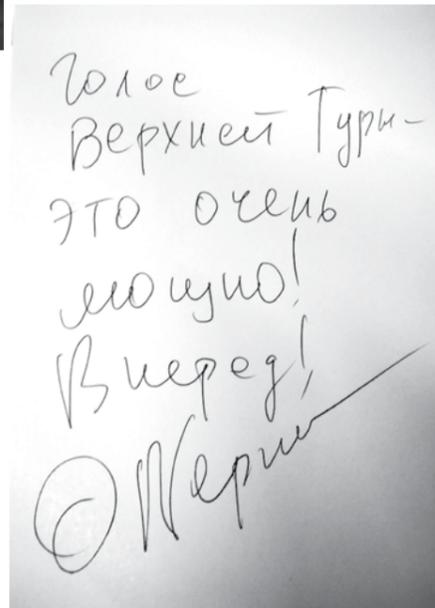 Голос
Верхней Туры -
это очень
мощно!
Вперед!